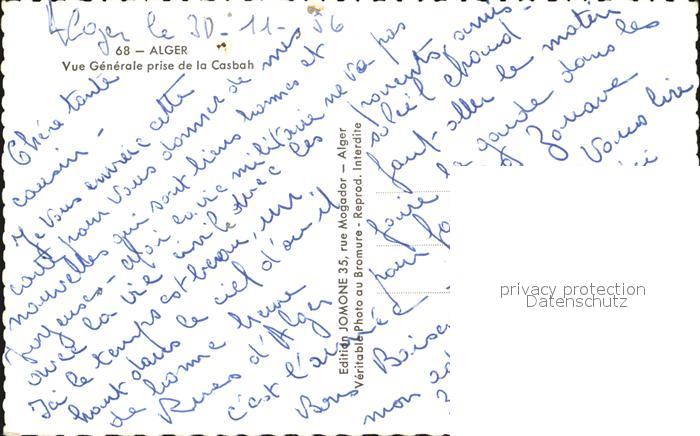 Alger le 30-11-56
68 — ALGER
Vue Générale prise de la Casbah
Chère tante
cousin -
Je vous envoie cette
carte pour vous donner de mes
nouvelles qui sont bien bonnes et
joyeuses - la vie militaire ne va pas
avec la vie civile avec les
Ici le temps est beau, un
haut dans le ciel d'où il
de bonne heure
Rues d'Alger
c'est l'armée
Bons Baise
mon
parents, amis
soleil chaud -
faut aller le matin
faire la garde dans les
pour Zouave
Vous lire
Edition JOMONE 35, rue Mogador — Alger
Véritable Photo au Bromure - Reprod. Interdite
privacy protection
Datenschutz